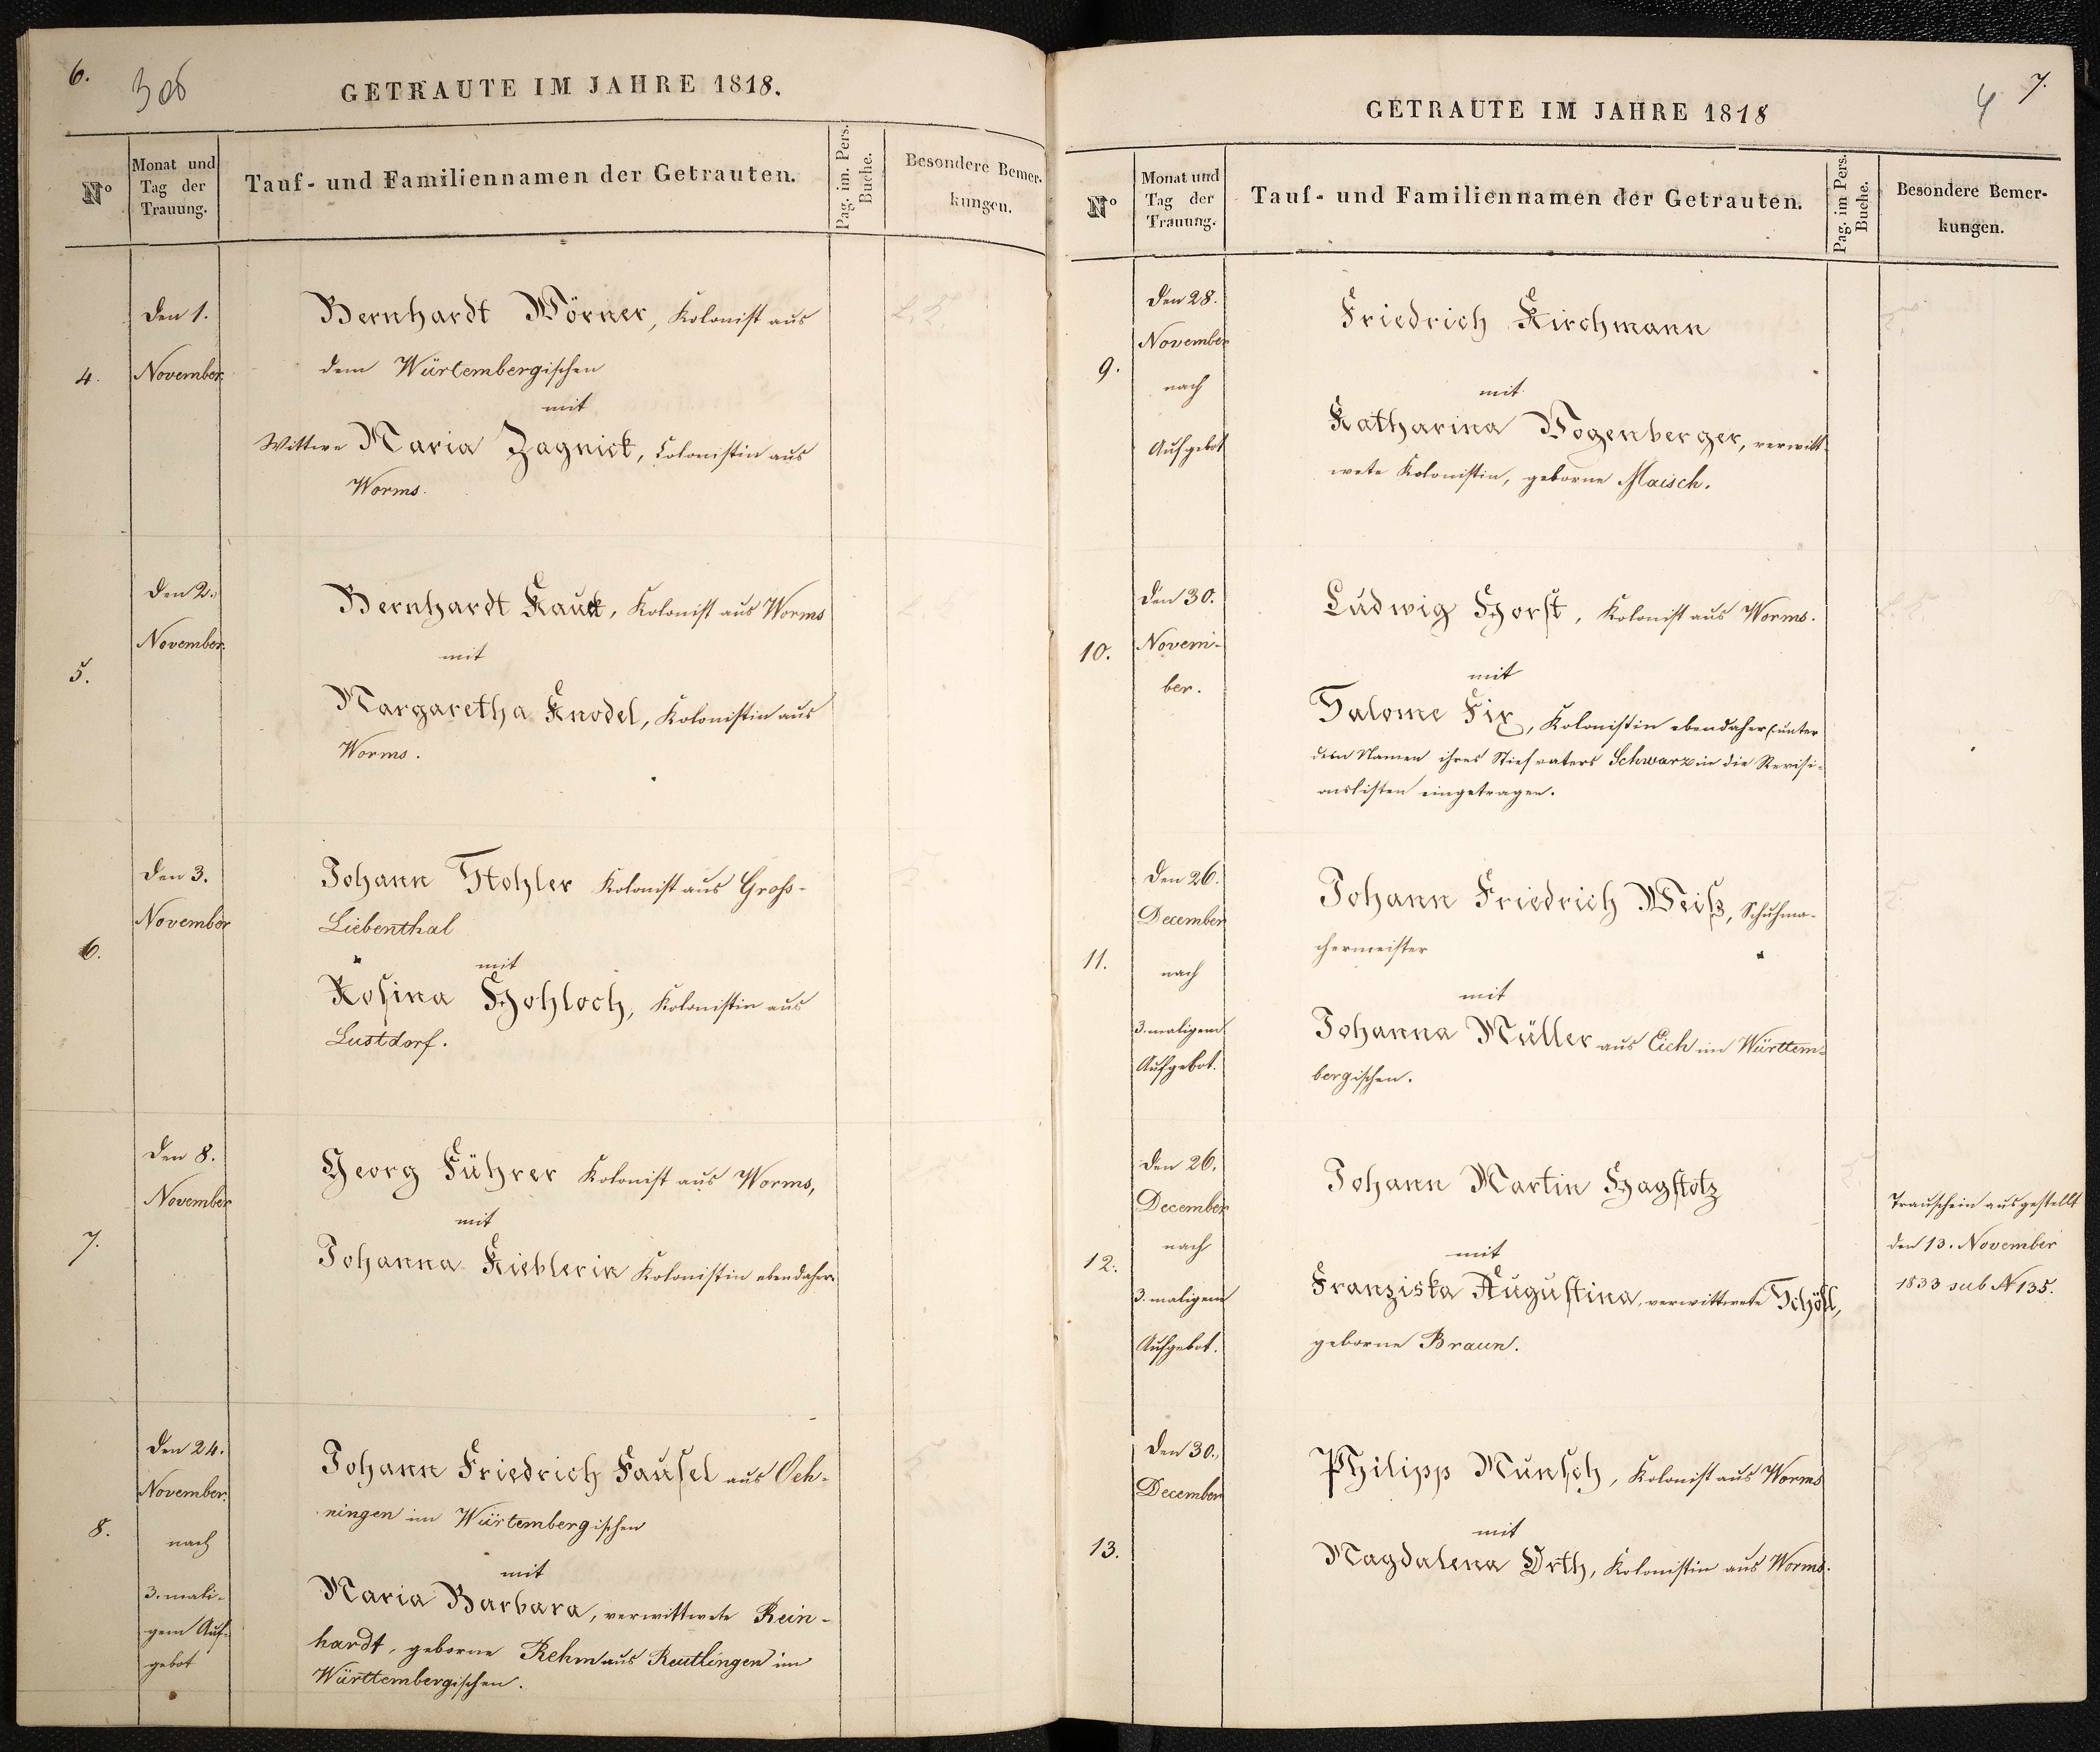 6.
306
GETRAUTE IM JAHRE 1818.
Nº
Monat und
Tag der
Trauung.
Tauf- und Familiennamen der Getrauten.
Pag. im. Pers.
Buche.
Besondere Bemer-
kungen.
4.
den 1.
November.
Bernhardt Wörner, Kolonist aus
dem Würtembergischen
mit
Wittwe Maria Zagnick, Colonistin aus
Worms.
5.
den 2.
November.
Bernhardt Kauk, Kolonist aus Worms
mit
Margaretha Knodel, Kolonistin aus
Worms.
6.
den 3.
November
Johann Stohler Kolonist aus Groß-
Liebenthal
mit
Rosina Hohloch, Kolonistin aus
Lustdorf.
7.
den 8.
November
Georg Führer Kolonist aus Worms,
mit
Johanna Kieblerin Kolonistin ebendaher.
8.
den 24.
November.
nach
3. mali-
gem Auf-
gebot
Johann Friedrich Fausel aus Oeh-
ningen im Würtembergischen
mit
Maria Barbara, verwittwete Rein-
hardt, geborne Rehm aus Reutlingen im
Württembergischen.
7.
4
GETRAUTE IM JAHRE 1818
Nº
Monat und
Tag der
Trauung.
Tauf- und Familiennamen der Getrauten.
Pag. im Pers.
Buche.
Besondere Bemer-
kungen.
9.
den 28.
November
nach
Aufgebot
Friedrich Kirchmann
mit
Katharina Wogenberger, verwitt-
wete Kolonistin, geborne Maisch.
10.
den 30.
Novem-
ber.
Ludwig Horst, Kolonist aus Worms.
mit
Salome Fix, Kolonistin ebendaher (unter
dem Namen ihres Stiefvaters Schwarz in die Revisi-
onslisten eingetragen.
11.
den 26.
December
nach
3. maligem
Aufgebot.
Johann Friedrich Weiß, Schuhma-
chermeister
mit
Johanna Müller aus Eich im Württem-
bergischen.
12.
den 26.
December
nach
3. maligem
Aufgebot.
Johann Martin Hagstotz
mit
Franziska Augustina, verwittwete Schöll,
geborne Braun.
Trauschein ausgestellt
den 13. November
1833 sub N 135.
13.
den 30.
December
Philipp Munsch, Kolonist aus Worms
mit
Magdalena Orth, Kolonistin aus Worms.